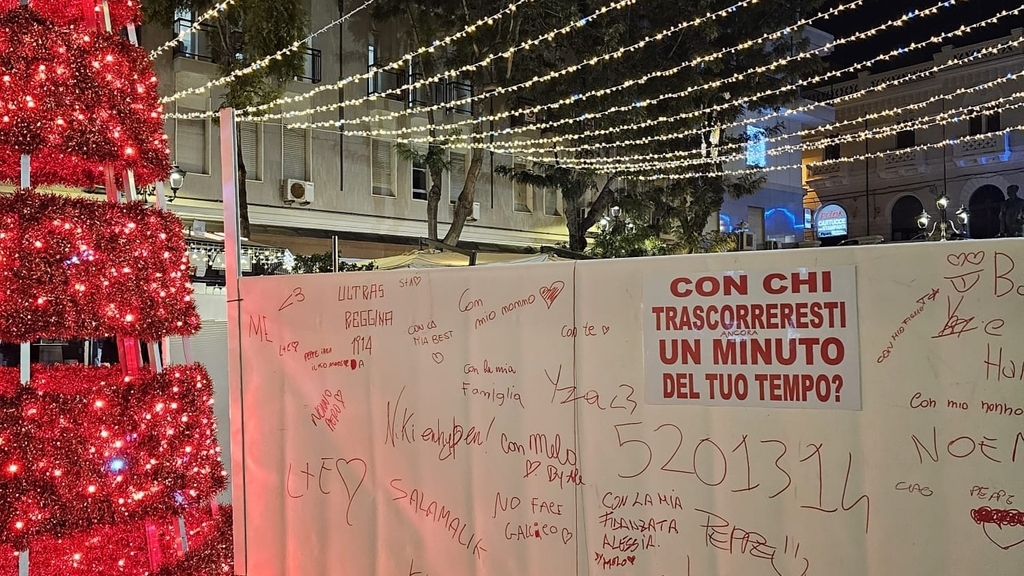 CON CHI
TRASCORRERESTI
ANCORA
UN MINUTO
DEL TUO TEMPO?
<3
ULTRAS
REGGINA
1914
ME
L+E
CON LA
MIA BEST
Con
mio nonno
con te
con la mia
Famiglia
Yza <3
NONNO
Niki enhypen!
L+E
SALAMALIK
con Melo
NO FARE
5201314
CON LA MIA
FIDANZATA
ALESSIA.
PEPPE!!!
Con mio nonno
NOEM
CIAO
PEPPE